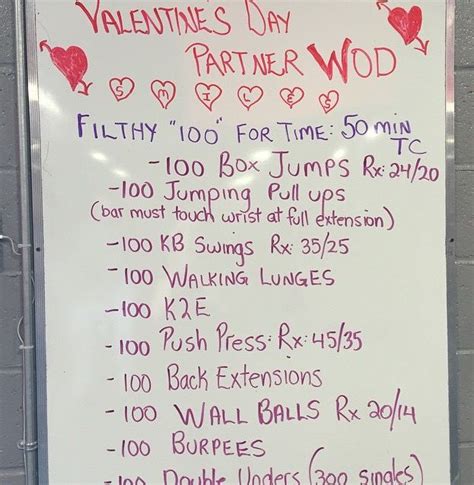 VALENTINE'S DAY
PARTNER WOD
SMILES
FILTHY "100" FOR TIME: 50 min
TC
-100 Box Jumps Rx: 24/20
-100 Jumping Pull ups
(bar must touch wrist at full extension)
-100 KB Swings Rx: 35/25
-100 WALKING LUNGES
-100 K2E
-100 Push Press: Rx: 45/35
-100 Back Extensions
-100 WALL BALLS Rx 20/14
-100 BURPEES
-100 Double Unders (300 singles)